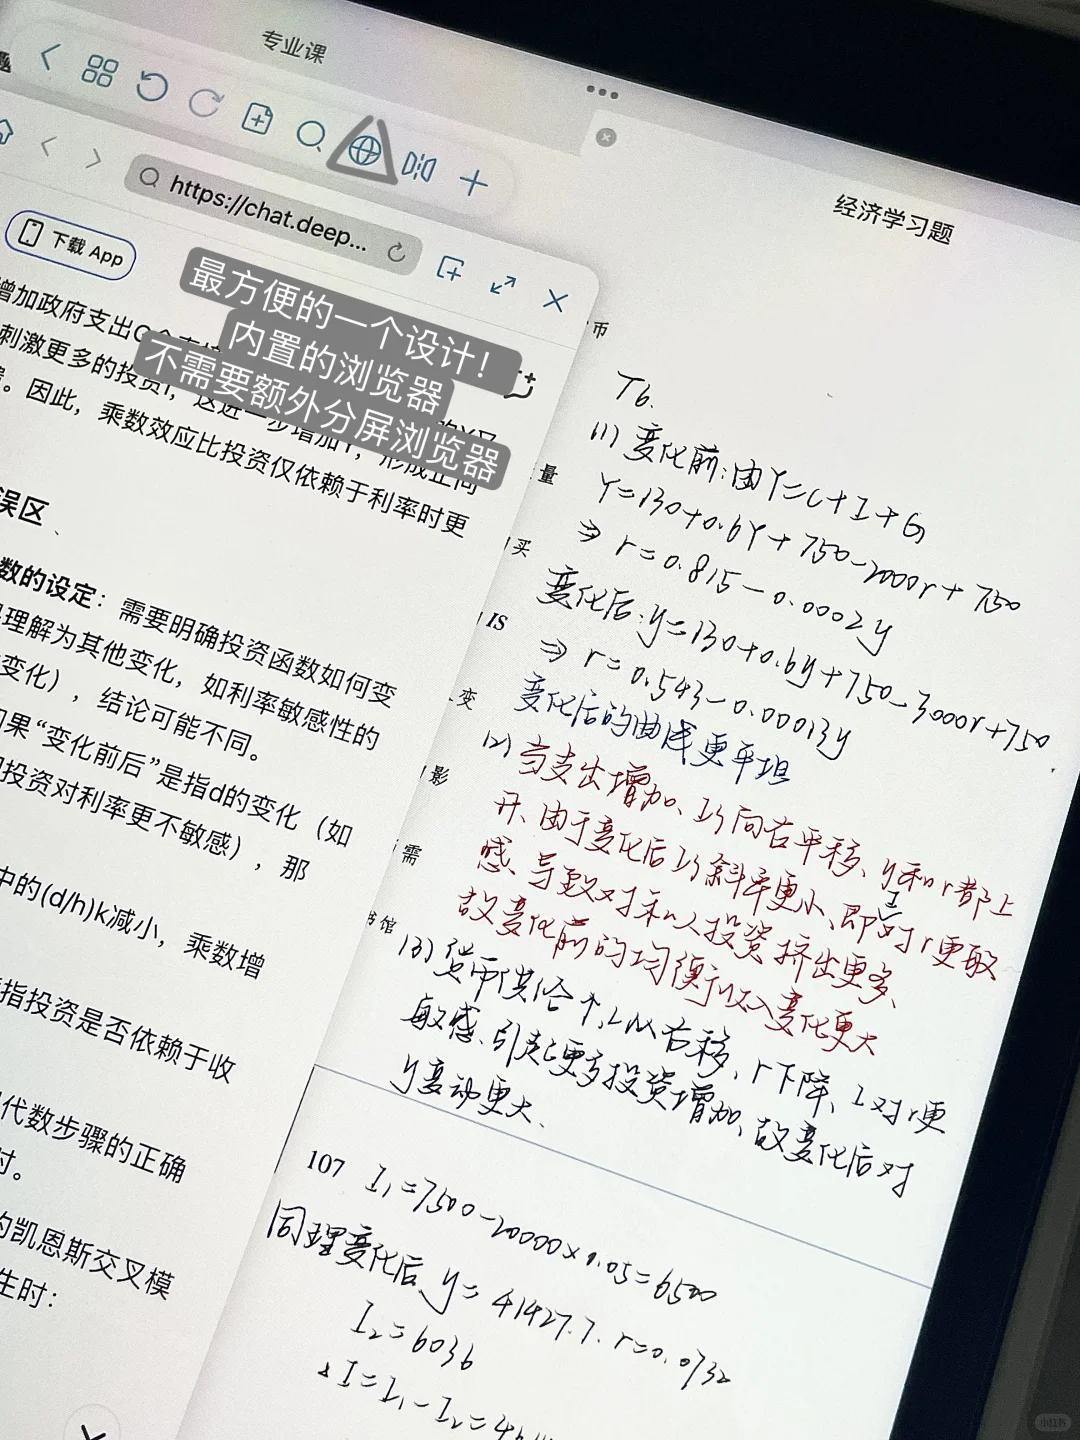 专业课
https://chat.deep...
下载 App
最方便的一个设计！
内置的浏览器
不需要额外分屏浏览器
增加政府支出G
刺激更多的投资I，这进一步增加Y，形成正向
。因此，乘数效应比投资仅依赖于利率时更
误区
数的设定：需要明确投资函数如何变
理解为其他变化，如利率敏感性的
变化），结论可能不同。
果“变化前后”是指d的变化（如
投资对利率更不敏感），那
中的(d/h)k减小，乘数增
指投资是否依赖于收
代数步骤的正确
时。
的凯恩斯交叉模
生时：
经济学习题
币
量
买
IS
变
影
需
书馆
T6.
(1) 变化前：由Y=C+I+G
Y=130+0.6Y+750-2000r+750
⇒ r=0.815-0.0002y
变化后：y=130+0.6y+750-3000r+750
⇒ r=0.543-0.00013y
变化后的曲线更平坦
(2) 当支出增加、IS向右平移、y和r都上
升、由于变化后IS斜率更小、即I对r更敏
感、导致对私人投资挤出更多、
故变化前的均衡收入变化更大
(3) 货币供给↑,LM右移、r下降、I对r更
敏感、引起更多投资增加、故变化后对
y变动更大、
107
I₁=7500-20000×0.05=6500
同理变化后、y=41427.7. r=0.0732
I₂=6036
△I=I₁-I₂=
小红书